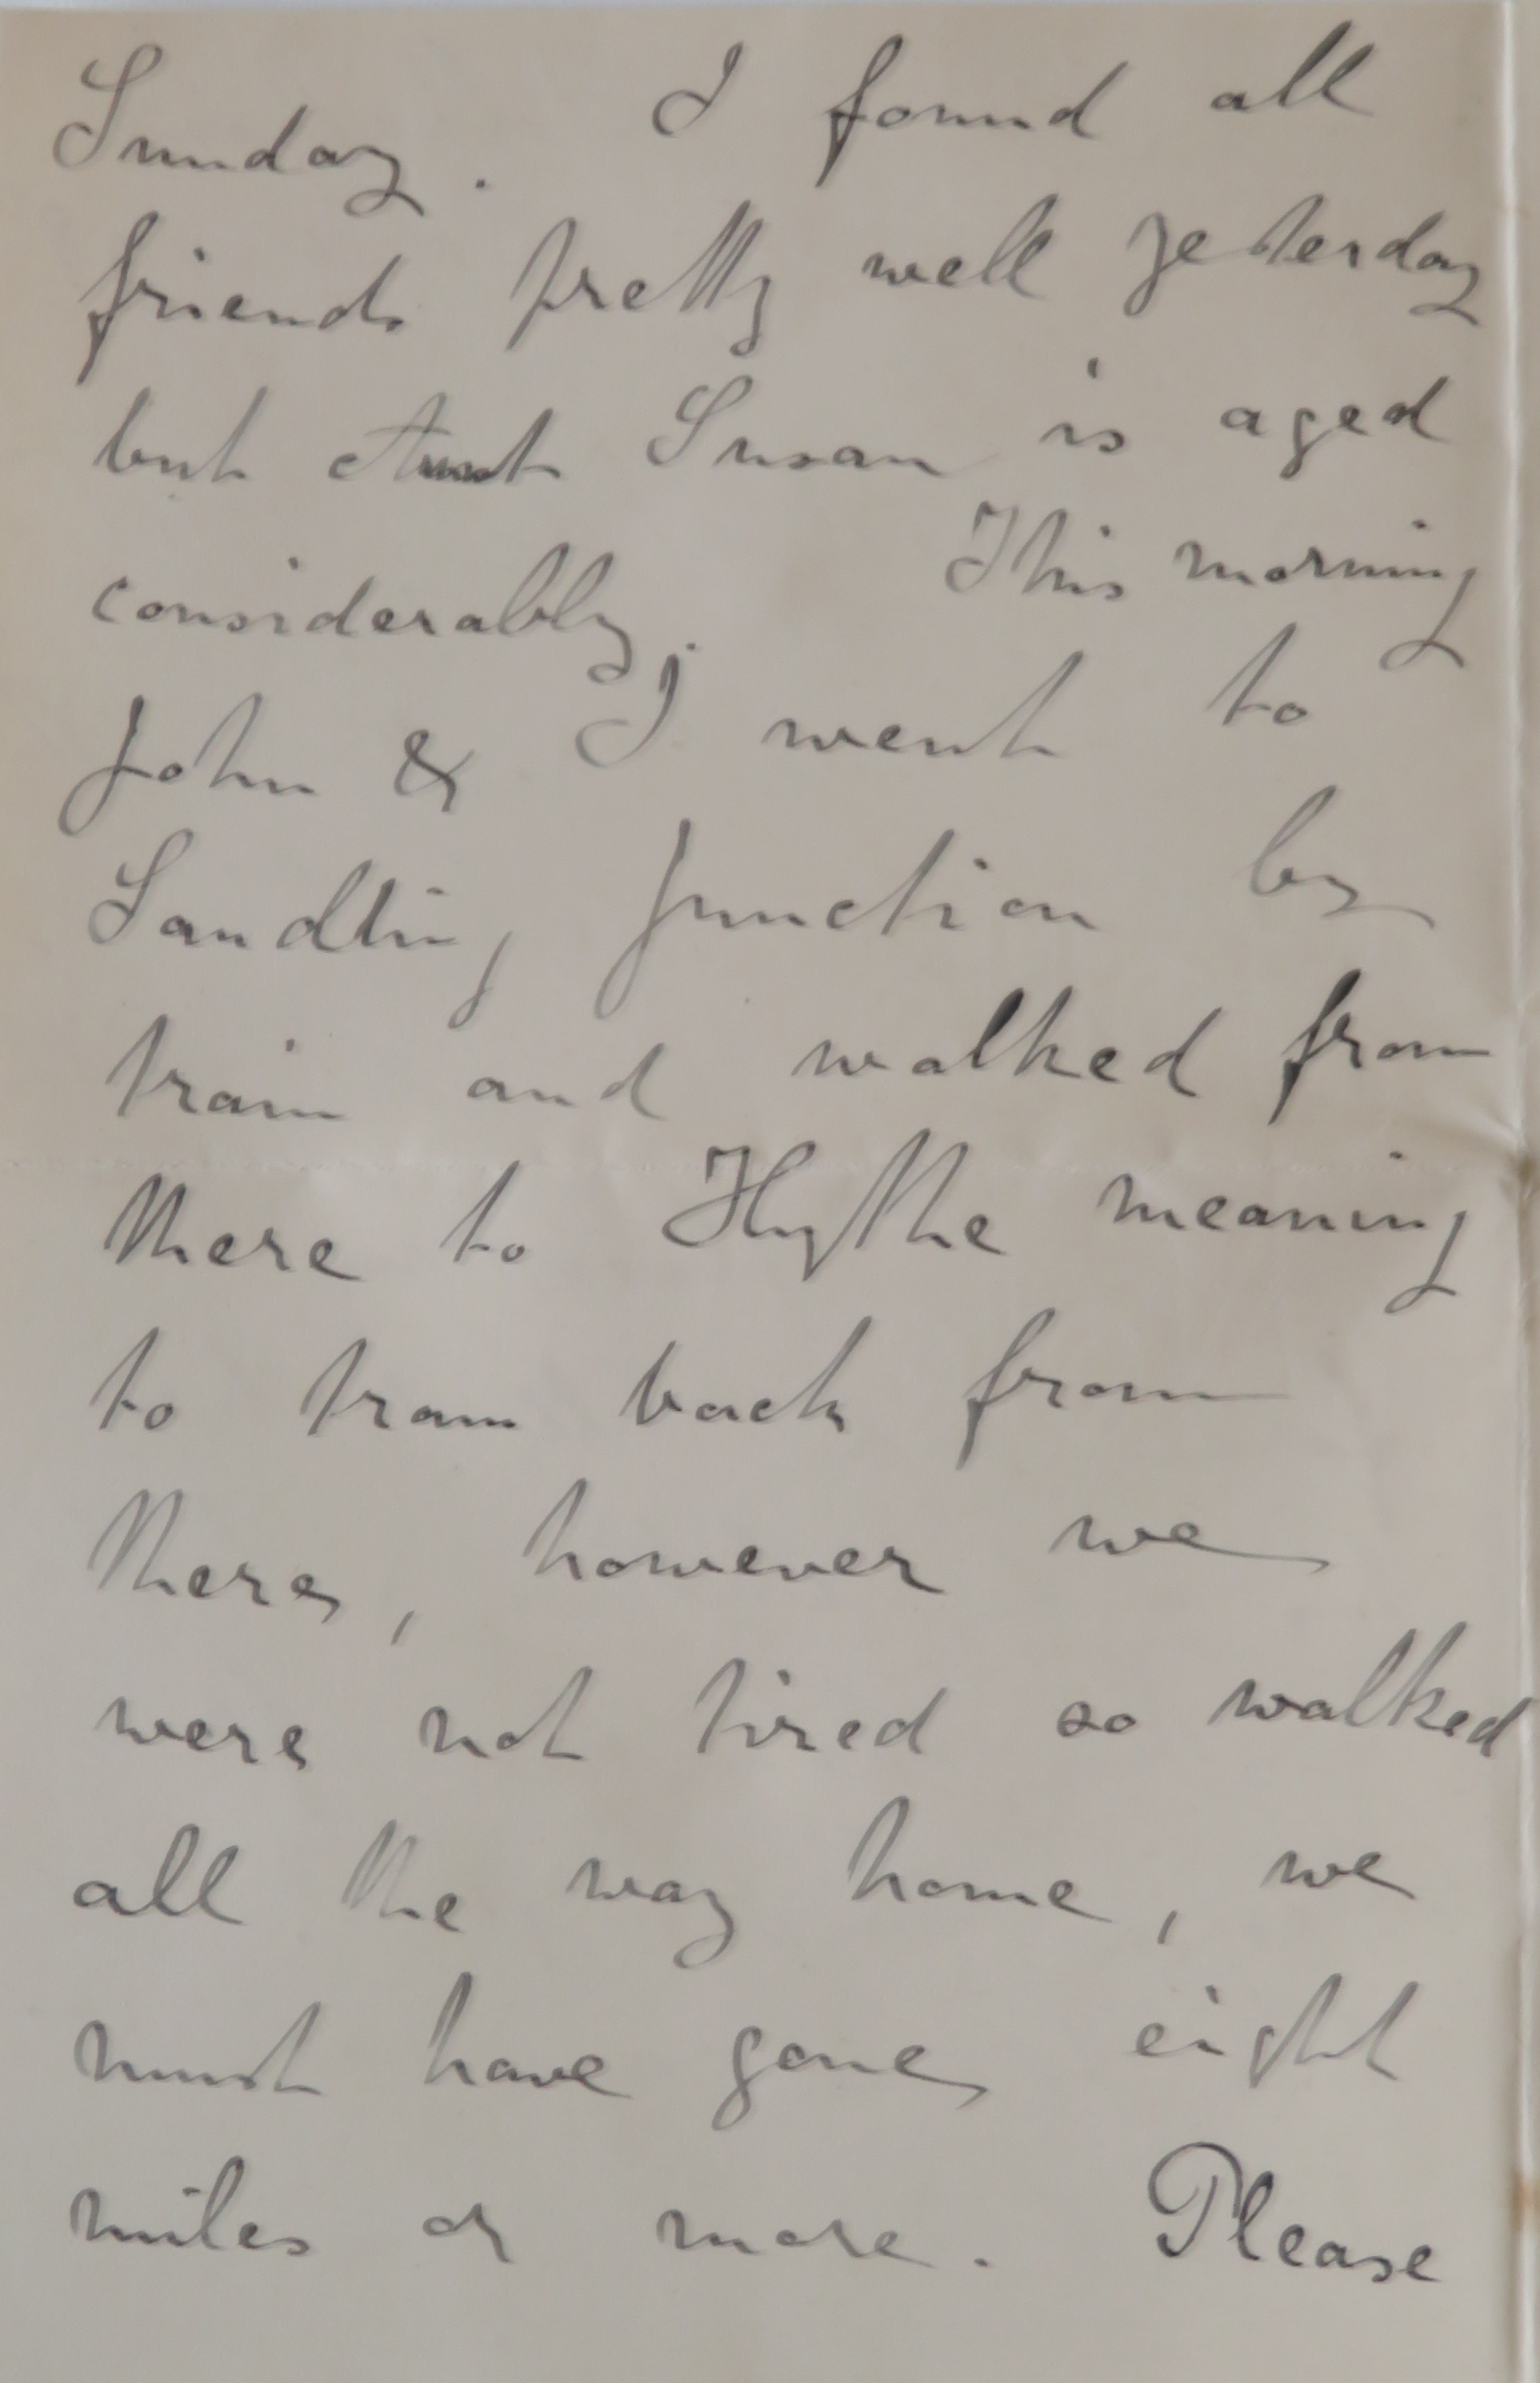 Sunday. I found all
friends pretty well yesterday
but Aunt Susan is aged
considerably. This morning
John & I went to
Sandling Junction by
train and walked from
there to Hythe meaning
to tram back from
there, however we
were not tired so walked
all the way home, we
must have gone eight
miles or more. Please